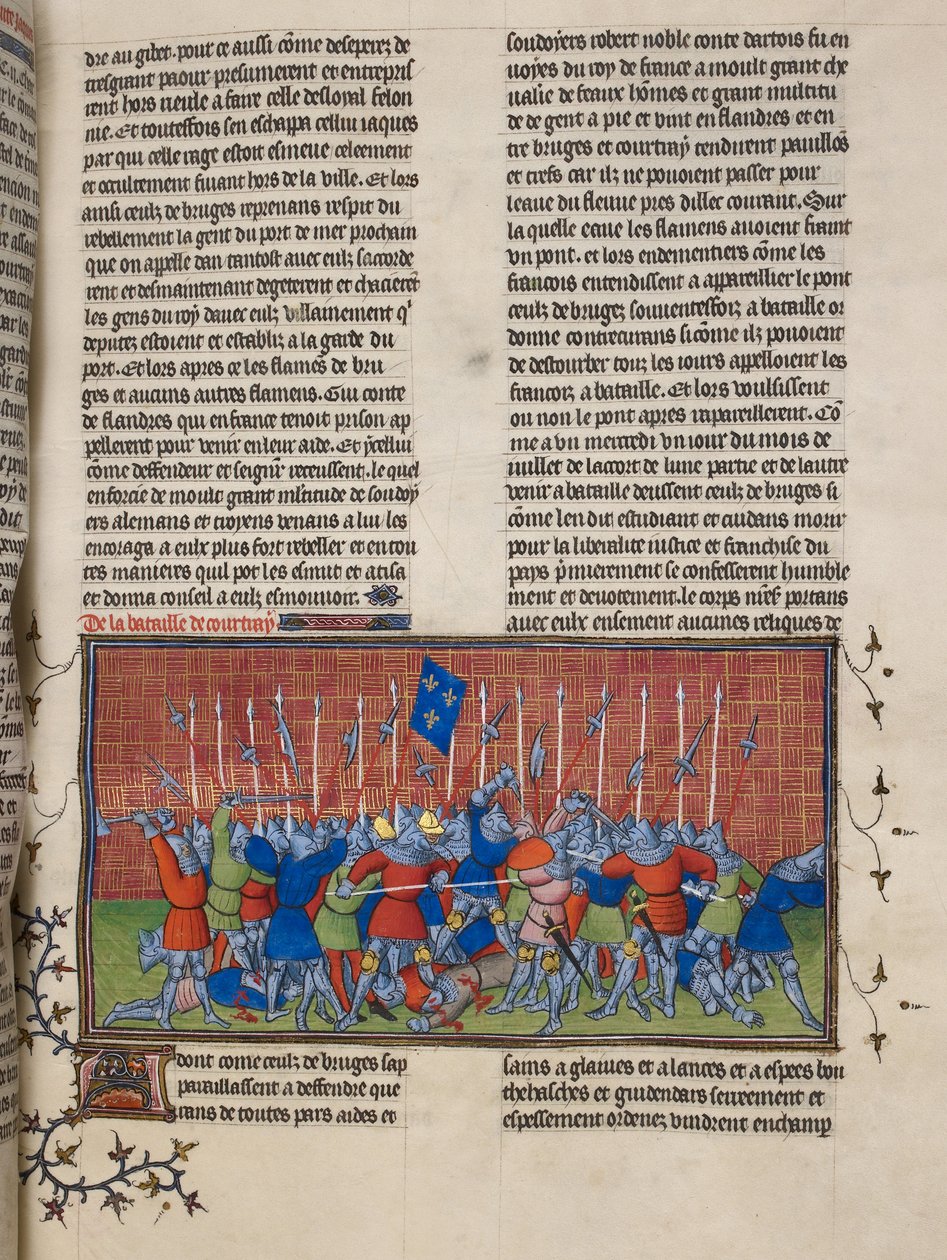 dre au gibet. pour ce aussi cõme deseperez de
tresgrant paour presumerent et entrepris
rent hors rieule a faire celle desloyal felon
nie. Et toutesfois sen eschappa cellui iaques
par qui celle rage estoit esmeue celeement
et occultement fuiant hors de la ville. Et lors
ainsi ceulz de bruges reprenans respit du
rebellement la gent du port de mer prochain
que on appelle dan tantost auec eulz saccorde
rent et desmaintenant degeterent et chacierẽt
les gens du roy dauec eulz villainement q'
deputez estoient et establiz a la garde du
port. Et lors apres ce les flamẽs de bru
ges et aucuns autres flamens. Gui conte
de flandres qui en france tenoit prison ap
pellerent pour venir en leur aide. Et ycellui
cõme deffendeur et seignr̃ receussent. le quel
enforcie de moult grant mltitude de soudoy
ers alemans et tiyoens venans a lui les
encoraga a eulx plus fort rebeller et en tou
tes manieres quil pot les esmut et atisa
et donna conseil a eulz esmouuoir.
De la bataille de courtray
Adont come ceulz de bruges sap
paraillassent a deffendre que
rans de toutes pars aides et
soudoyers robert noble conte dartois fu en
uoyes du roy de france a moult grant che
ualie de feaux hõmes et grant multitu
de de gent a pie et vint en flandres et en
tre bruges et courtray tendirent pauillõs
et trefs car ilz ne pouoient passer pour
leaue du fleuue pres dillec courant. Sur
la quelle eaue les flamens auoient fraint
vn pont. et lors endementiers cõme les
francois entendissent a appareillier le pont
ceulz de bruges souuentesfoiz a bataille or
donne contrecurans si cõme ilz pouoient
de destourber touz les iours appelloient les
francoiz a bataille. Et lors voulsissent
ou non le pont apres rapareillerent. Cõ
me a vn mercredi vn iour du mois de
iuillet de laccort de lune partie et de lautre
venir a bataille deussent ceulz de bruges si
cõme len dit estudiant et cuidans morir
pour la liberalite iustice et franchise du
pays p̃mierement se confesserent humble
ment et deuotement. le corps nrẽ sr̃ portans
auec eulx ensement aucunes reliques de
sains a glaiues et a lances et a espees bou
thehasches et guidendars serreement et
espessement ordenez vindrent en champ